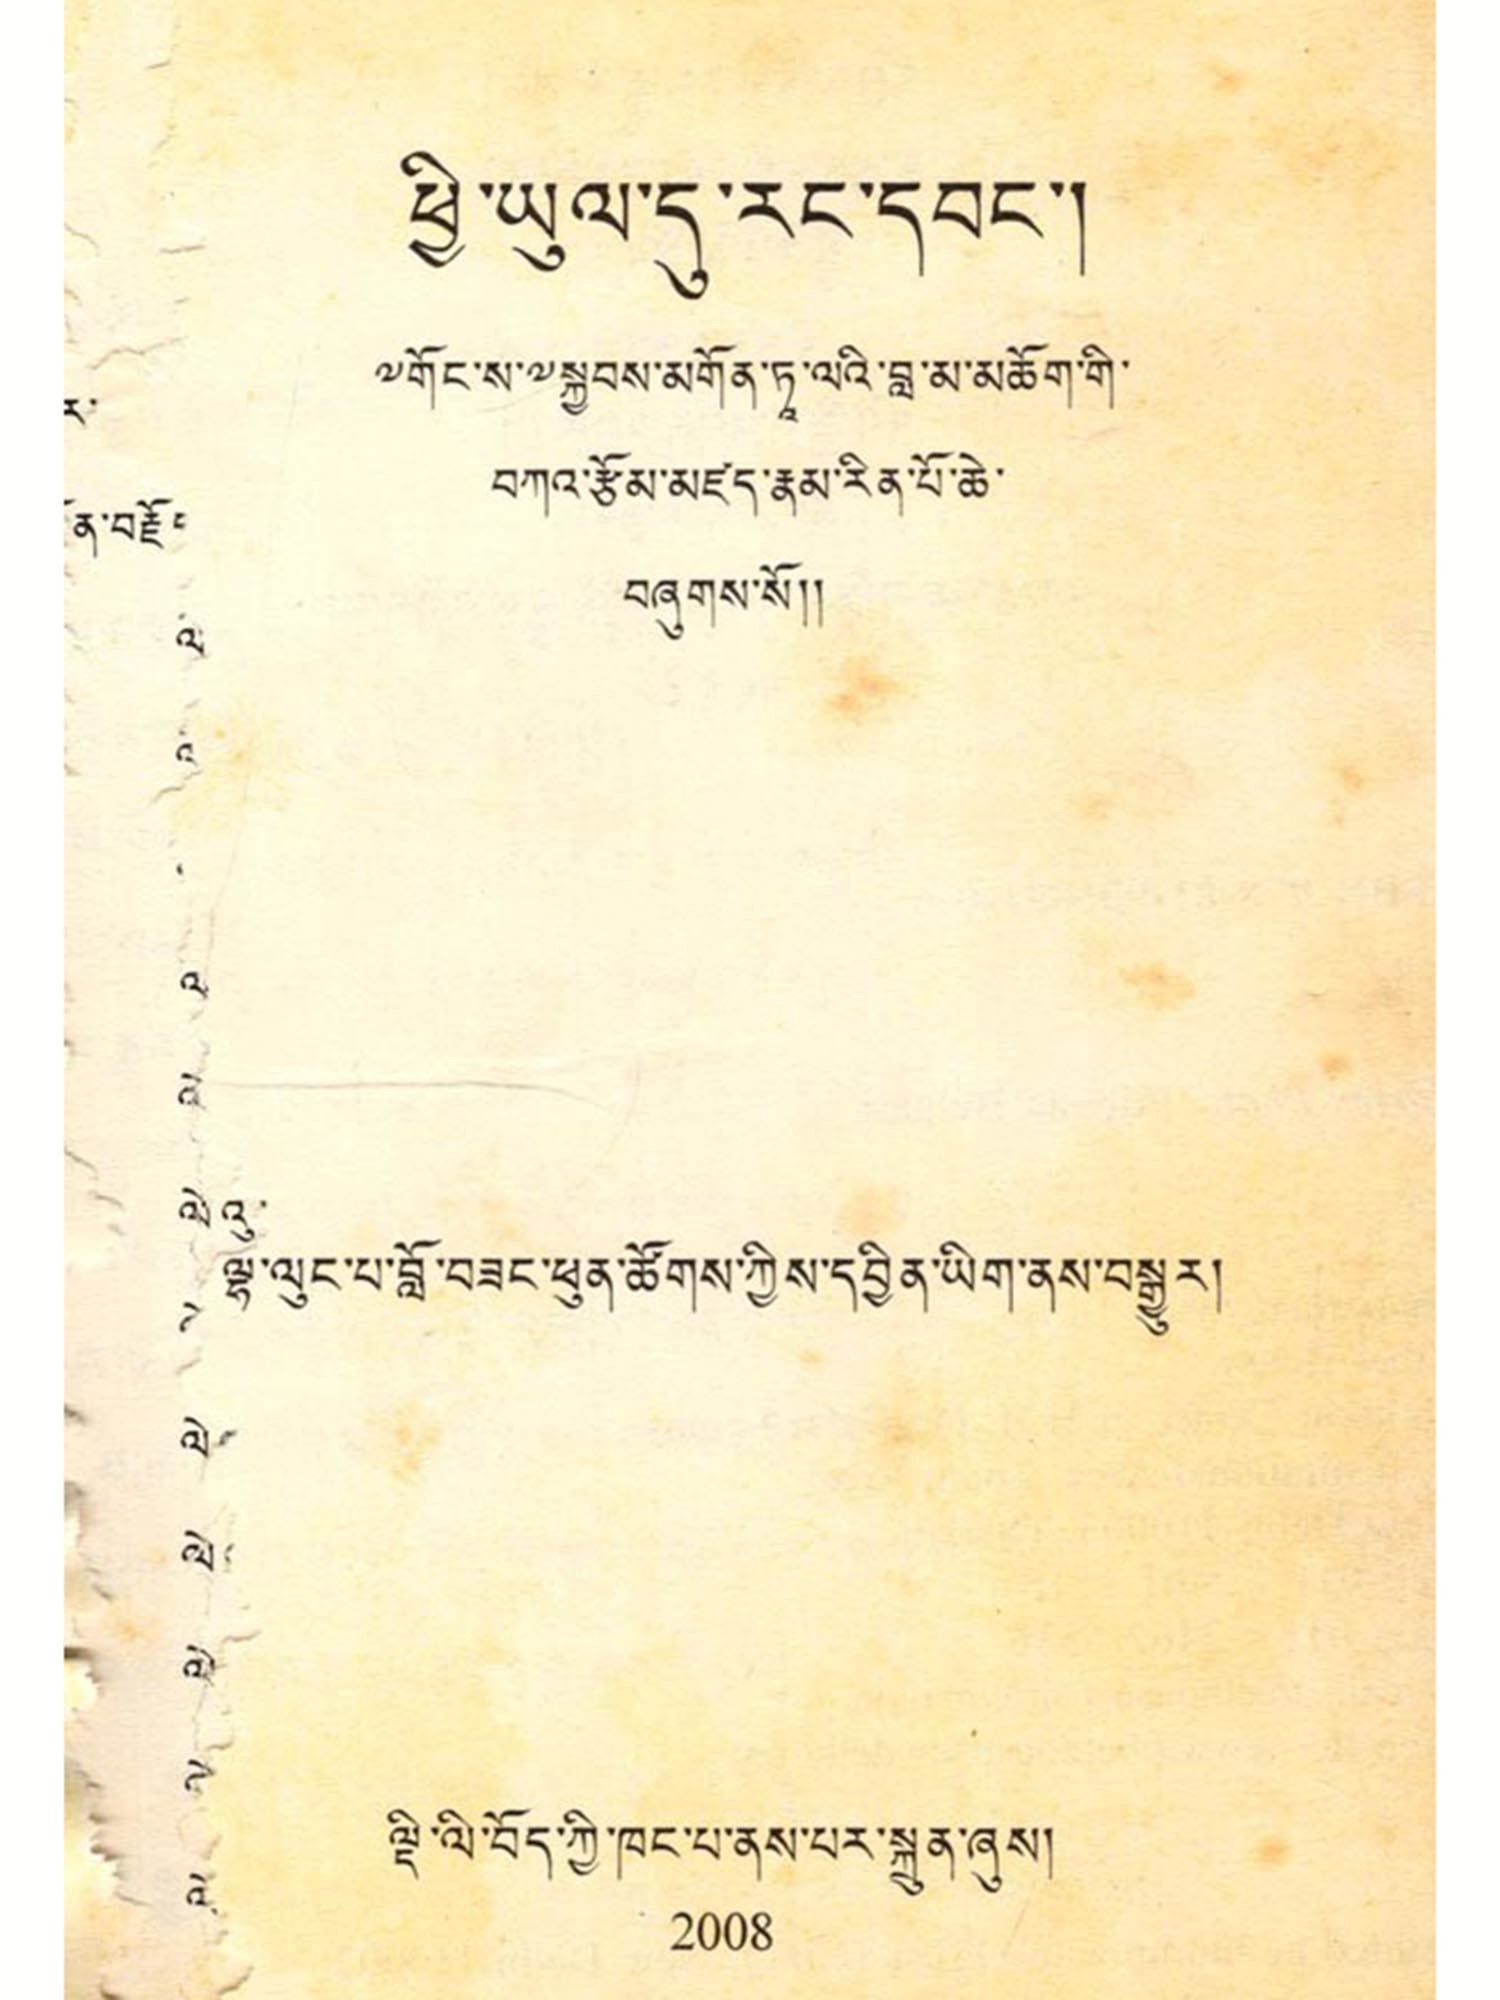 ཕྱི་ཡུལ་དུ་རང་དབང་།
༧གོང་ས་༧སྐྱབས་མགོན་ཏཱ་ལའི་བླ་མ་མཆོག་གི་
བཀའ་རྩོམ་མཛད་རྣམ་རིན་པོ་ཆེ་
བཞུགས་སོ།།
ལྷ་ལུང་པ་བློ་བཟང་ཕུན་ཚོགས་ཀྱིས་དབྱིན་ཡིག་ནས་བསྒྱུར།
ལྡི་ལི་བོད་ཀྱི་ཁང་པ་ནས་པར་སྐྲུན་ཞུས།
2008